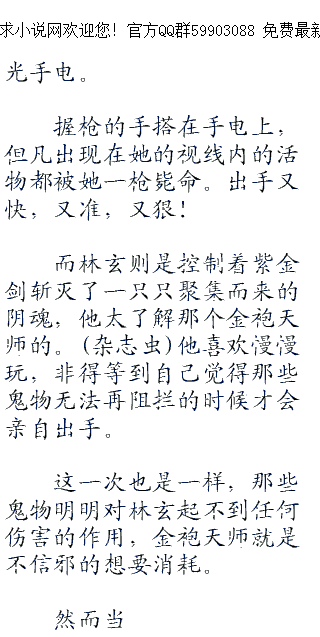 求小说网欢迎您！官方QQ群59903088 免费最新
光手电。
握枪的手搭在手电上，
但凡出现在她的视线内的活
物都被她一枪毙命。出手又
快，又准，又狠！
而林玄则是控制着紫金
剑斩灭了一只只聚集而来的
阴魂，他太了解那个金袍天
师的。(杂志虫)他喜欢慢慢
玩，非得等到自己觉得那些
鬼物无法再阻拦的时候才会
亲自出手。
这一次也是一样，那些
鬼物明明对林玄起不到任何
伤害的作用，金袍天师就是
不信邪的想要消耗。
然而当